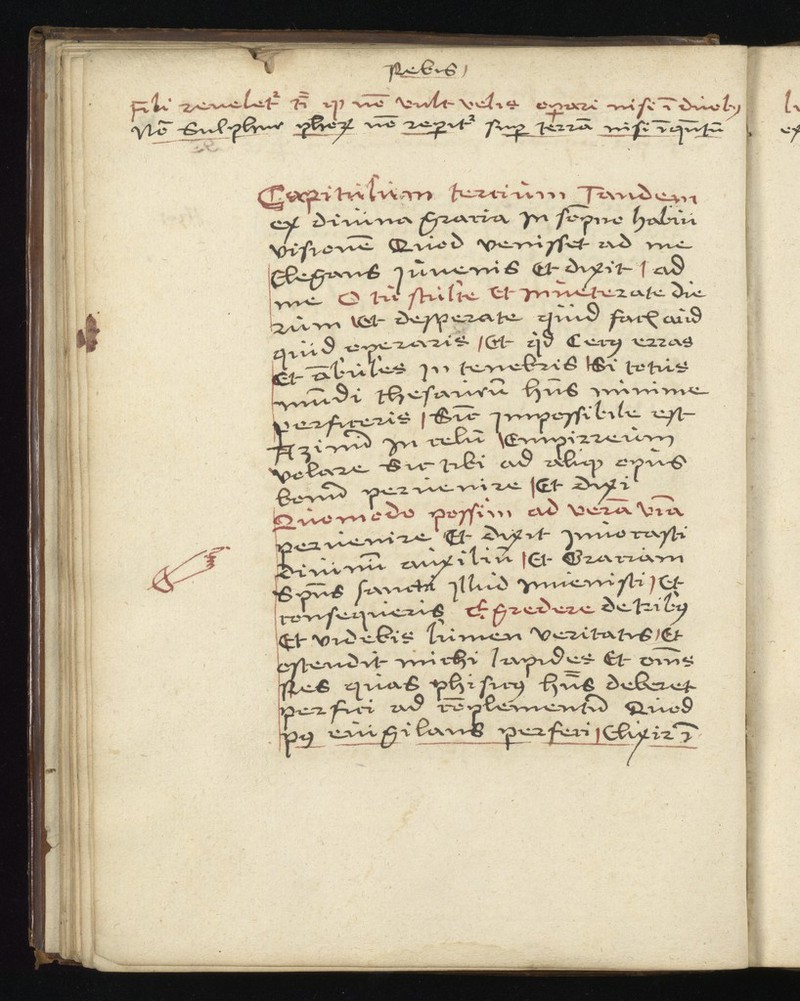 Rebis
Fili revelet² tn̄ qp nō vult velis operari nisi ī duobꝰ
Nō Sulphur phoꝝ nō reperit² sup terrā nisi īqȝtū
Capitulum tercium Tandem
ex divina gracia In sōpno habui
visionē Quod venisset ad me
Elegans Juvenis Et dixit / ad
me O tu stulte Et Inveterate die
rum Et desperate quid facis aūd
quid operaris / Et qd Cecꝰ erras
Et ābules In tenebris Si totus
mūdi thesaurū hn̄s minime
perficeris / Sicut Impossibile est
Azinū In celū Empirreum
volare Sic tibi ad aliqȝ opus
bonū pervenire / Et dixi
Quomodo possim ad verā viā
pervenire Et dixit Invocasti
divinū auxiliū / Et Graciam
Spūs sancti Illud Invenisti / Et
consequeris Egredere de tribꝰ
Et videbis lumen veritatis / Et
ostendit michi lapides Et om̄s
Res quas phisicꝰ hn̄s deberet
perfici ad cōplementū Quod
pꝰ evigilans perfeci / Elixir ī